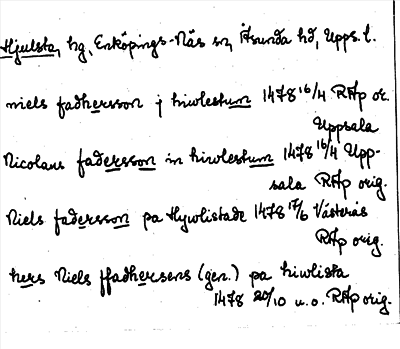 Hjulsta, hg, Enköpings-Näs sn, Åsunda hd, Upps. l.
niels fadhersson j hiwlestum 1478 16/4 RAp or.
Uppsala
Nicolaus fadersson in hiwlestum 1478 16/4 Upp-
sala RAp orig.
Niels fadersson pa Hywlistade 1478 17/6 Västerås
RAp orig.
hers Niels ffadhersens (gen.) pa hiwlista
1478 20/10 u.o. RAp orig.